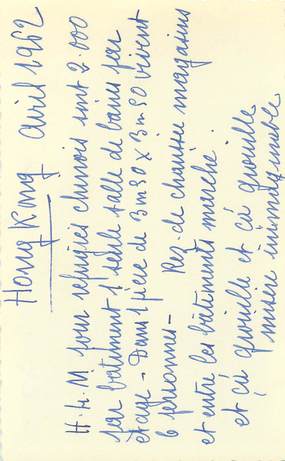 Hong Kong avril 1962
H.L.M. pour refugiés chinois soit 2.000
par batiment 1 seule salle de bains par
étage - Dans 1 pièce de 3m90 x 3m50 vivent
6 personnes - Rez-de chaussée magasins
et entre les bâtiments marché.
et çà grouille et çà grouille
misère inimaginable